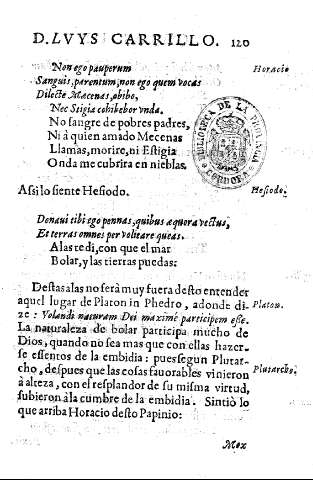 D. LVYS CARRILLO. 120
Non ego pauperum Horacio
Sanguis, parentum, non ego quem vocas
Dilecte Mecenas, obibo,
Nec Stigia cohibebor vnda.
No sangre de pobres padres,
Ni á quien amado Mecenas
Llamas, morire, ni Estigia
Onda me cubrira en nieblas.
BIBLIOTECA DE LA
CORDOBA
Assi lo siente Hesiodo. Hesiodo.
Donaui tibi ego pennas, quibus æquora vectus,
Et terras omnes per volitare queas.
Alas te di, con que el mar
Bolar, y las tierras puedas:
Destas alas no será muy fuera desto entender
aquel lugar de Platon in Phedro, adonde di- Platon.
ze: Volandi naturam Dei maximè participem esse.
La naturaleza de bolar participa mucho de
Dios, quando no sea mas que con ellas hazer-
se essentos de la embidia: pues segun Plutar- Plutarcho.
cho, despues que las cosas fauorables vinieron
à alteza, con el resplandor de su misma virtud,
subieron à la cumbre de la embidia. Sintiò lo
que arriba Horacio desto Papinio:
Mox